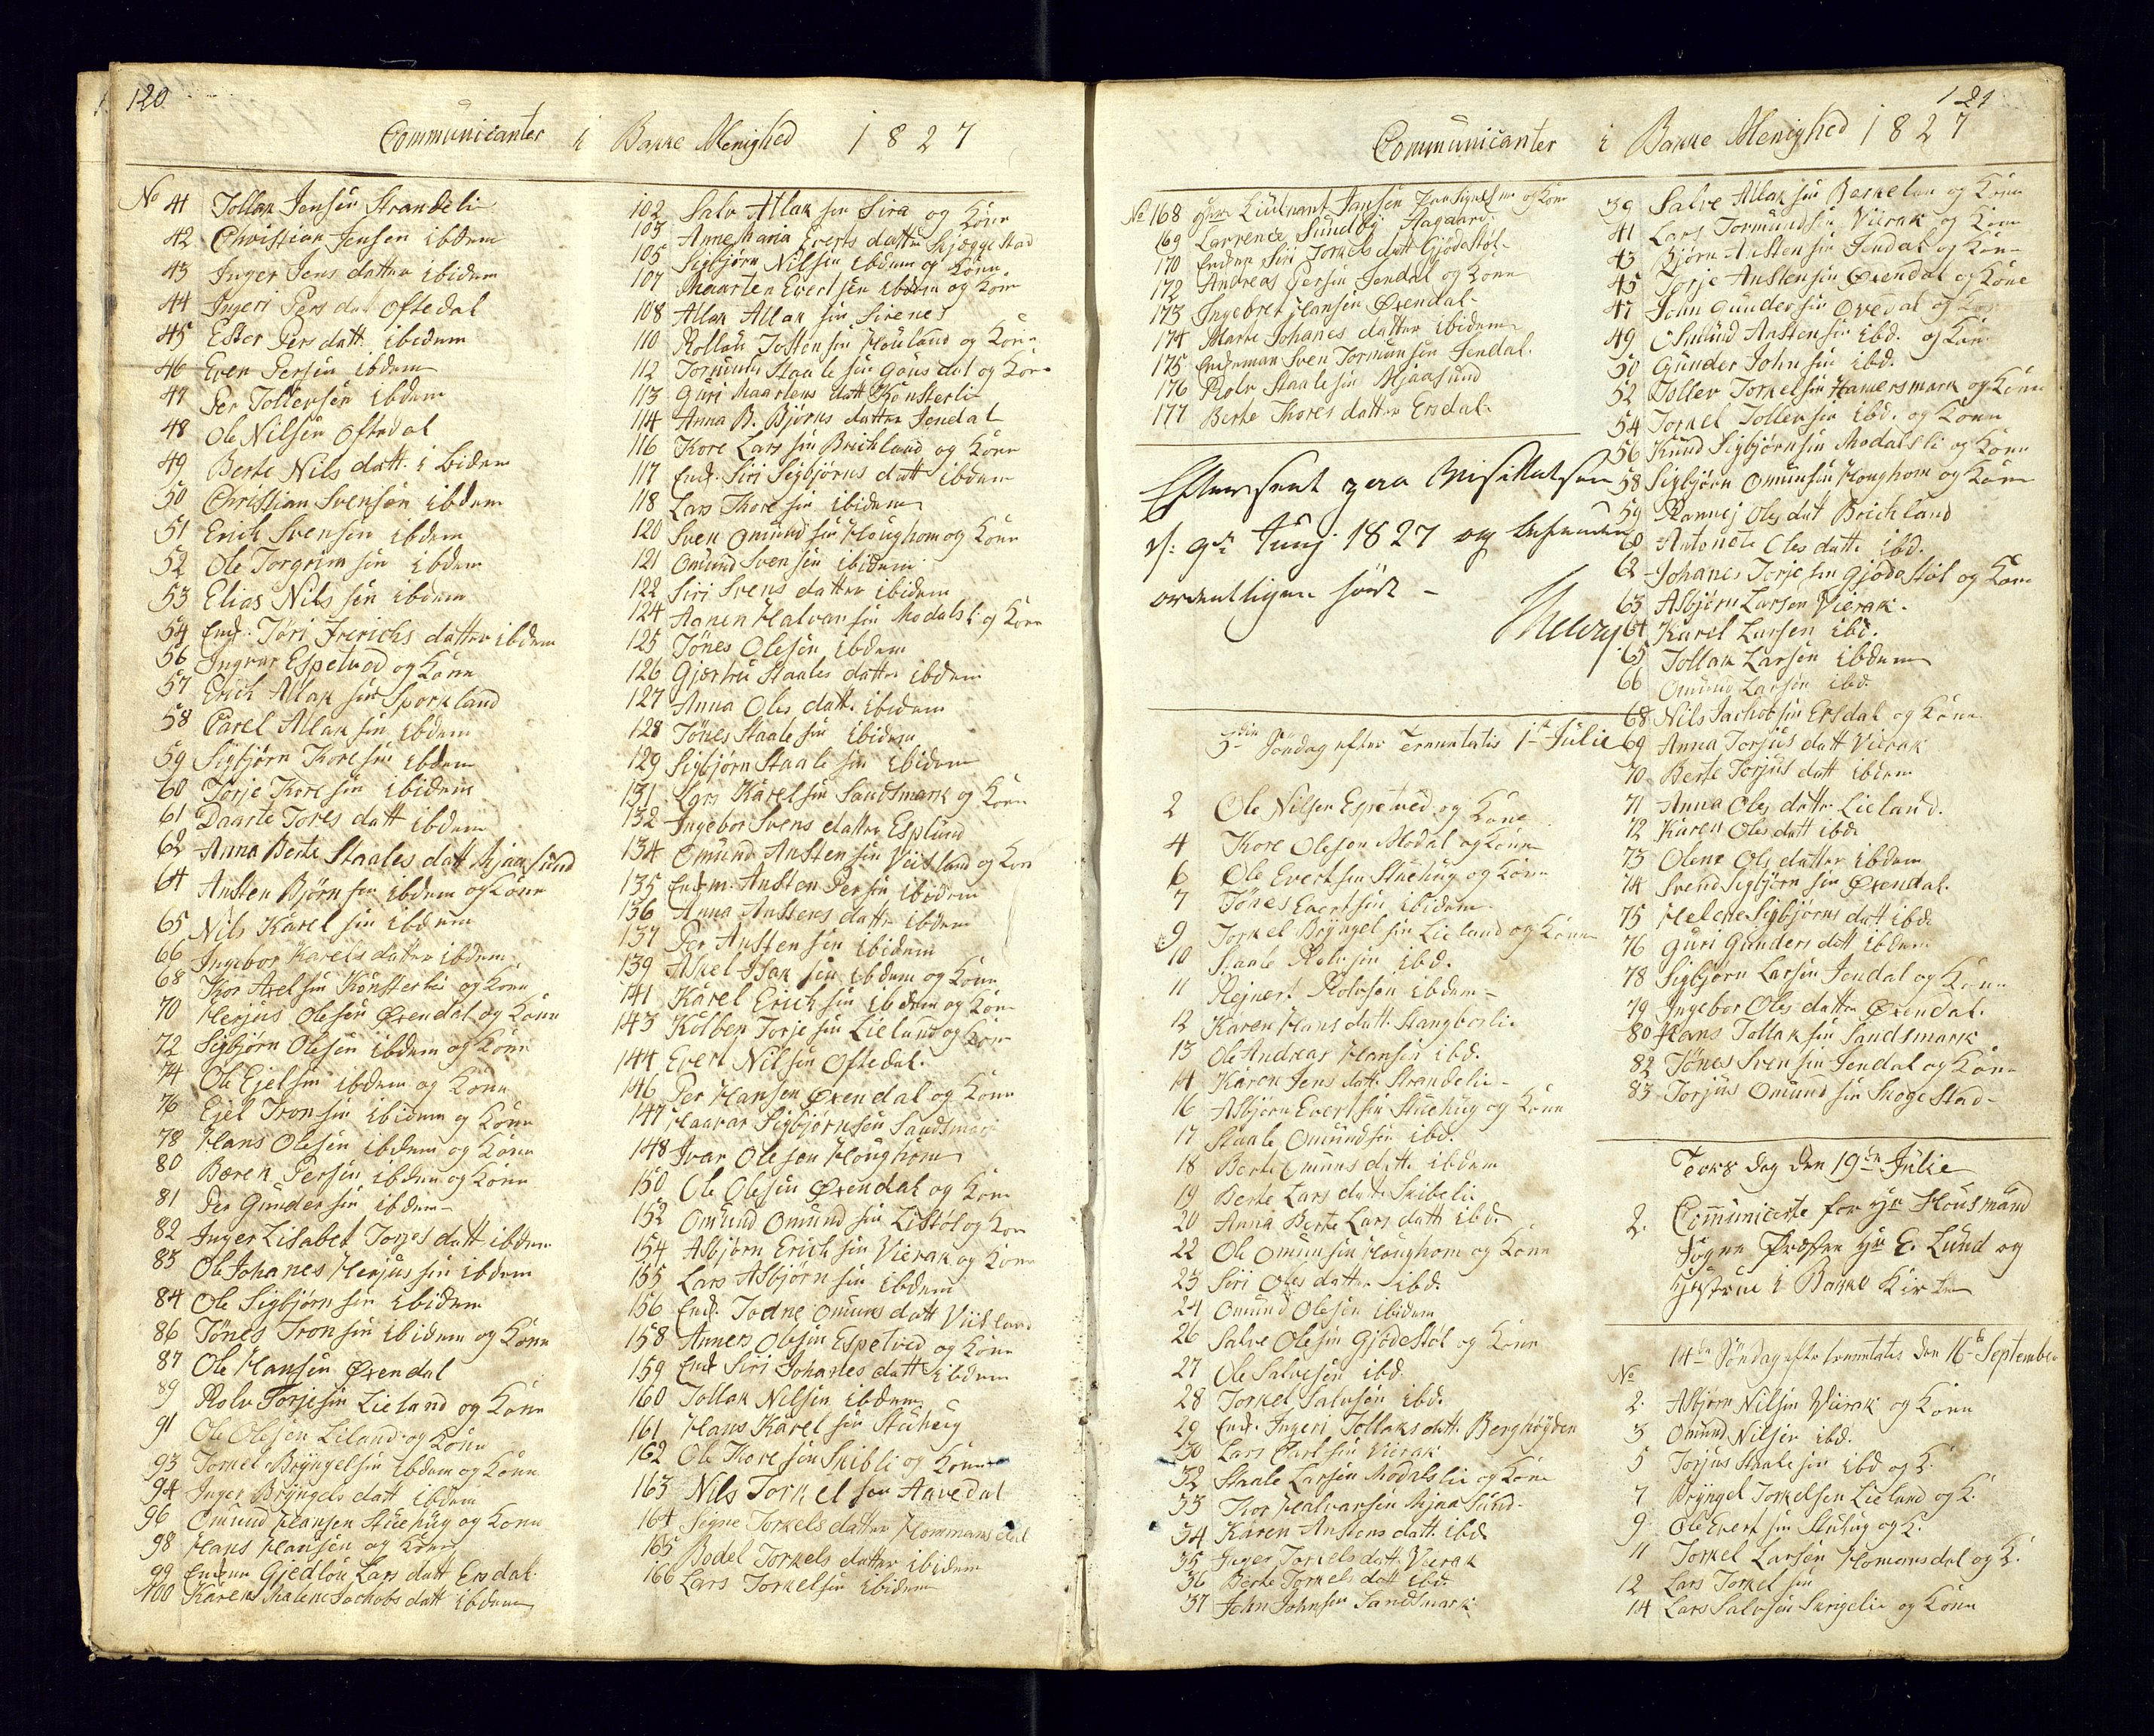 120
Communicanter i Bakke Menighed 1827
No 41 Tollak Jensen Strandeli
42 Christian Jensen ibdem
43 Inger Jens datter ibidem
44 Ingeri Pers dat Oftedal
45 Ester Pers datt. ibidem
46 Even Persen ibdem
47 Per Tollevsen ibdem
48 Ole Nilsen Oftedal
49 Berte Nils datt. ibidem
50 Christian Svensen ibdem
51 Erich Svensen ibdem
52 Ole Torgrim sin ibdem
53 Elias Nils sin ibdem
54 Enk. Jöri Frerichs datter ibdem
56 Ingvar Espetved og Kone
57 Erich Atlak sin Sporkland
58 Carel Atlak sin ibdem
59 Sigbjørn Kore sin ibdem
60 Torje Kore sin ibidem
61 Daarte Tores datt ibdem
62 Anna Berte Staales datt Mjaasund
64 Ansten Bjørn sin ibdem og Kone
65 Nils Karel sin ibdem
66 Ingebor Karels datter ibdem
68 Kor Axel sin Konsterlie og Kone
70 Herjus Olesen Øxendal og Kone
72 Sigbjörn Olesen ibdem og Kone
74 Ole Ejelsin ibdem og Kone
76 Ejel Tronsin ibidem og Kone
78 Hans Olesen ibdem og Kone
80 Bæren Persen ibdem og Kone
81 Per Gunder sin ibdem
82 Inger Lisabet Torjes datt ibdem
83 Ole Johanes Herjus sin ibdem
84 Ole Sigbjørn sin ibidem
86 Tönes Tron sin ibidem og Kone
87 Ole Hansen Øxendal
89 Rolv Torjesin Lieland og Kone
91 Ole Olesen Liland og Kone
93 Torkel Bryngelsin ibdem og Kone
94 Inger Bryngels datt ibdem
96 Omund Hansen Stuehug og Kone
98 Hans Hansen og Kone
99 Gjedlou Lars datt Ersdal
100 Karen Malene Jachobs datt ibdem
102 Salv Atlak sin Sira og Kone
103 Anne Maria Everts datter Skjeggestad
105 Sigbjörn Nilsen ibdem og Kone
107 Maarten Evertsen ibdem og Kone
108 Atlak Atlak sin Sirenes
110 Rollau Tostensin Houland og Kone
112 Tormund Staale sin Gousdal og Kone
113 Guri Maartens datt Konsterli
114 Anna B. Björns datter Jendal
116 Kore Lars sin Brichland og Kone
117 Enk. Siri Sigbjørns datt ibdem
118 Lars Kore sin ibidem
120 Sven Omund sin Houghom og Kone
121 Omund Svensin ibidem
122 Siri Svens datter ibidem
124 Agnen Halvar sin Modalsli og Kone
125 Tönes Olesen ibdem
126 Gjertru Staales datter ibdem
127 Anna Oles datt. ibidem
128 Tönes Staale sin ibidem
129 Sigbjørn Staale sin ibidem
131 Lars Karel sin Sandsmark og Kone
132 Ingebor Svens datter Esplund
134 Omund Ansten sin Viisland og Kon
135 Enkm. Ansten Persin ibidem
136 Anna Anstens datter ibdem
137 Per Ansten sin ibidem
139 Askel Isak sin ibdem og Kone
141 Karel Erich sin ibdem og Kone
143 Kolben Torje sin Lieland og Kone
144 Evert Nilsen Oftedal.
146 Per Hansen Øxendal og Kone
147 Haavar Sigbjørnsen Sandsmark
148 Ivar Olesen Houghom
150 Ole Olesin Øxendal og Kone
152 Omund Omund sin Listöl og Kon
154 Asbjørn Erich sin Vierak og Kone
155 Lars Asbjørn sin ibdem
156 Enk. Jodne Omuns datt Viisland
158 Anners Olesin Espetved og Kone
159 Enk Siri Johanes datt ibdem
160 Tollak Nilsen ibdem
161 Hans Karel sin Stuehug
162 Ole Kore sin Skibli og Kone
163 Nils Torkel sen Aavedal
164 Signe Torkels datter Hommansdal
165 Bodel Torkels datter ibidem
166 Lars Torkelsin ibidem
121
Communicanter i Bakke Menighed 1827
No 168 Herr Lieutnant Jansen og Kone
169 Larrence Sundby Hagaard.
170 Siri Torkels datt Gjödestöl
172 Andreas Persen Jendal og Kone
173 Ingebret Hansen Øxendal.
174 Marte Johanes datter ibidem
175 Enkeman Sven Tormunsen Jendal.
176 Rolv Staale sin Mjaasund
177 Berte Thores datter Ersdal.
Efterseet paa Visitatsen
d: 9de Junj 1827 og befunden
ordentligen ført –
3die Söndag efter Trenetatis 1ste Julie
2 Ole Nilsen Espetved og Kone
4 Kore Olesen Modal og Kone
6 Ole Evertsen Stuehug og Kone
7 Tönes Evertsin ibidem
9 Torkel Bryngel sin Lieland og Kone
10 Staale Rolvsin ibd.
11 Rejnert Rolvsen ibdem
12 Karen Hans datt. Stangborli.
13 Ole Andreas Hansen ibd.
14 Karen Jens datt. Strandelie
16 Asbjørn Evert sin Stuehug og Kone
17 Staale Omundsen ibd.
18 Berte Omuns datt. ibdem
19 Berte Lars datt. Skibeli
20 Anna Berte Lars datt ibd.
22 Ole Omunsin Houghom og Kone
23 Siri Oles datter ibd.
24 Omund Olesen ibidem
26 Salve Olesin Gjödestöl og Kone
27 Ole Salvesen ibd.
28 Torkel Salvesen ibd.
29 Enk. Ingeri Tollaks datt. Berghøyden
30 Lars Carl sin Vierak
32 Staale Larsen Modalslie og Kone
33 Kor Halvarsen Mjaasund
34 Karen Anstens datt. ibd.
35 Inger Torkels datt. Vierak
36 Berte Torkels datt ibd.
37 John Johnsin Sandsmark
39 Salve Atlak sin Berkeland og Kone
41 Lars Tormundsin Viirak og Kone
43 Bjørn Ansten sin Jendal og Kone
45 Torje Ansten sin Øxendal og Kone
47 John Gunder sin Ovedal og Kon
49 Osmund Ansten sin ibd. og Kone
50 Gunder John sin ibd.
52 Tollev Torkelsin Hamersmark og Kone
54 Torkel Tollevsen ibd. og Kone
56 Knud Sigbjørnsin Modalsli og Kone
58 Sigbjørn Omunsin Houghom og Kone
59 Rannej Oles dat Brichland
60 Antonete Oles datt. ibd.
62 Johanes Torje sin Gjødestöl og Kone
63 Asbjørn Larsen Vierak.
64 Karel Larsen ibd.
65 Tollak Larsen ibdem
66 Omund Larsen ibd.
68 Nils Jachob sin Ersdal og Kone
69 Anna Torjus datt Vierak
70 Berte Torjus datt ibdem
71 Anna Oles datter Lieland.
72 Karen Oles datt ibd.
73 Olene Ols datter ibdem
74 Svend Sigbjørn sin Øxendal.
75 Helene Sigbjørns datt ibd.
76 Guri Gunders datt ibdem
78 Sigbjørn Larsen Jendal og Kone
79 Ingebor Oles datter Øxendal.
80 Hans Tollak sin Sandsmark
82 Tönes Sven sin Jendal og Kone
83 Torjus Omund sin Skogestad
Torsdag den 19de Julie
2. Communicerte for Hr Housmand
Sogne Præsten Hr E. Lund og
Hustrue i Bakke Kirke
14de Søndag efter Trenetatis den 16de September
No
2. Asbjørn Nilsen Viirak og Kone
3 Omund Nilsen ibd.
5 Torjus Staale sin ibd og K.
7 Bryngel Torkelsen Lieland og K.
9 Ole Evert sin Stuhug og K.
11 Torkel Larsen Homansdal og K.
12 Lars Torkel sin
14 Lars Salvesen Skrigelie og Kone